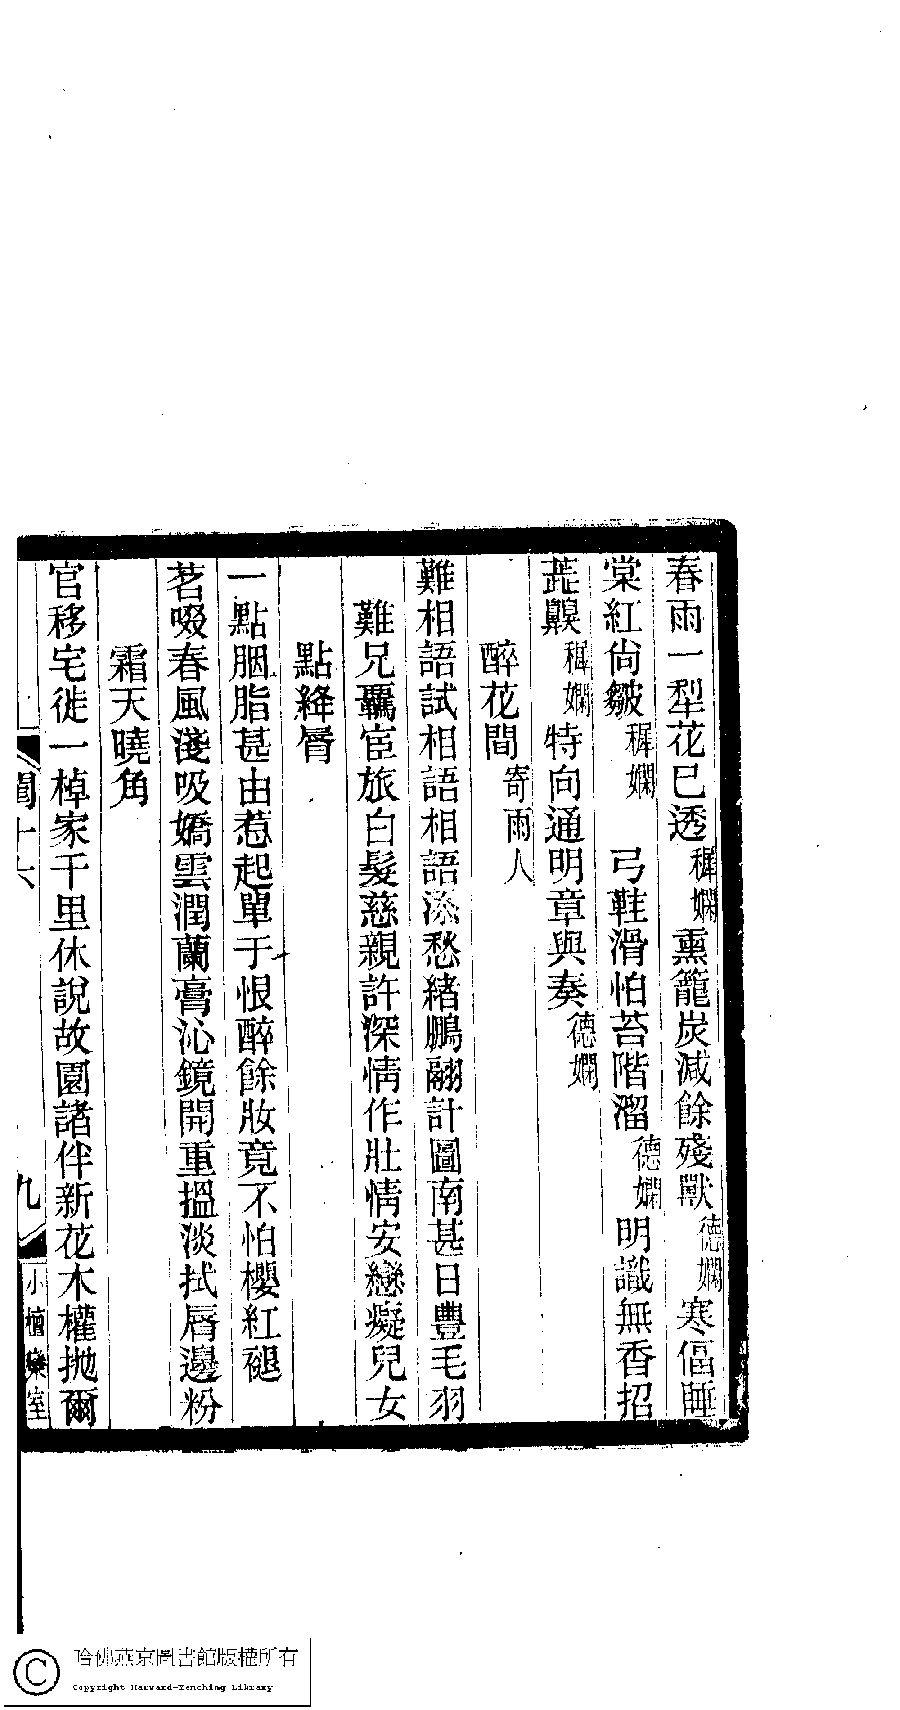 春雨一犁花巳透穉嫻熏籠炭減餘殘獸德嫻寒偪睡
棠紅尙皺穉嫻 弓鞋滑怕苔階溜德嫻明識無香招
穉嫻特向通明章與奏德嫻
醉花間寄雨人
難相語試相語相語添愁緒鵬翮計圖南甚日豐毛羽
難兄羈宦旅白髮慈親許深情作壯情安戀癡兒女
點絳脣
一點胭脂甚由惹起單于恨醉餘妝竟不怕櫻紅褪
茗啜春風淺吸嬌雲潤蘭膏沁鏡開重搵淡拭脣邊粉
霜天曉角
官移宅徙一棹家千里休說故園諸伴新花木權拋爾
閨十六
九
小檀欒室
哈佛燕京圖書館版權所有
Copyright Harvard-Yenching Library